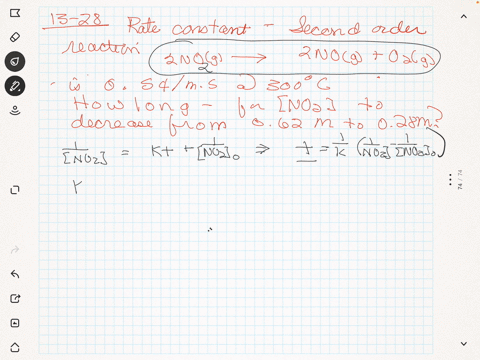 13-28 Rate constant - Second order
reaction 2NO2(g) → 2NO(g) + O2(g)
is 0.54/M.S @ 300°C
How long - for [NO2] to
decrease from 0.62 M to 0.28M?
1/[NO2] = Kt + 1/[NO2]0 ⇒ t = 1/K (1/[NO2] - 1/[NO2]0)
K
74 / 74